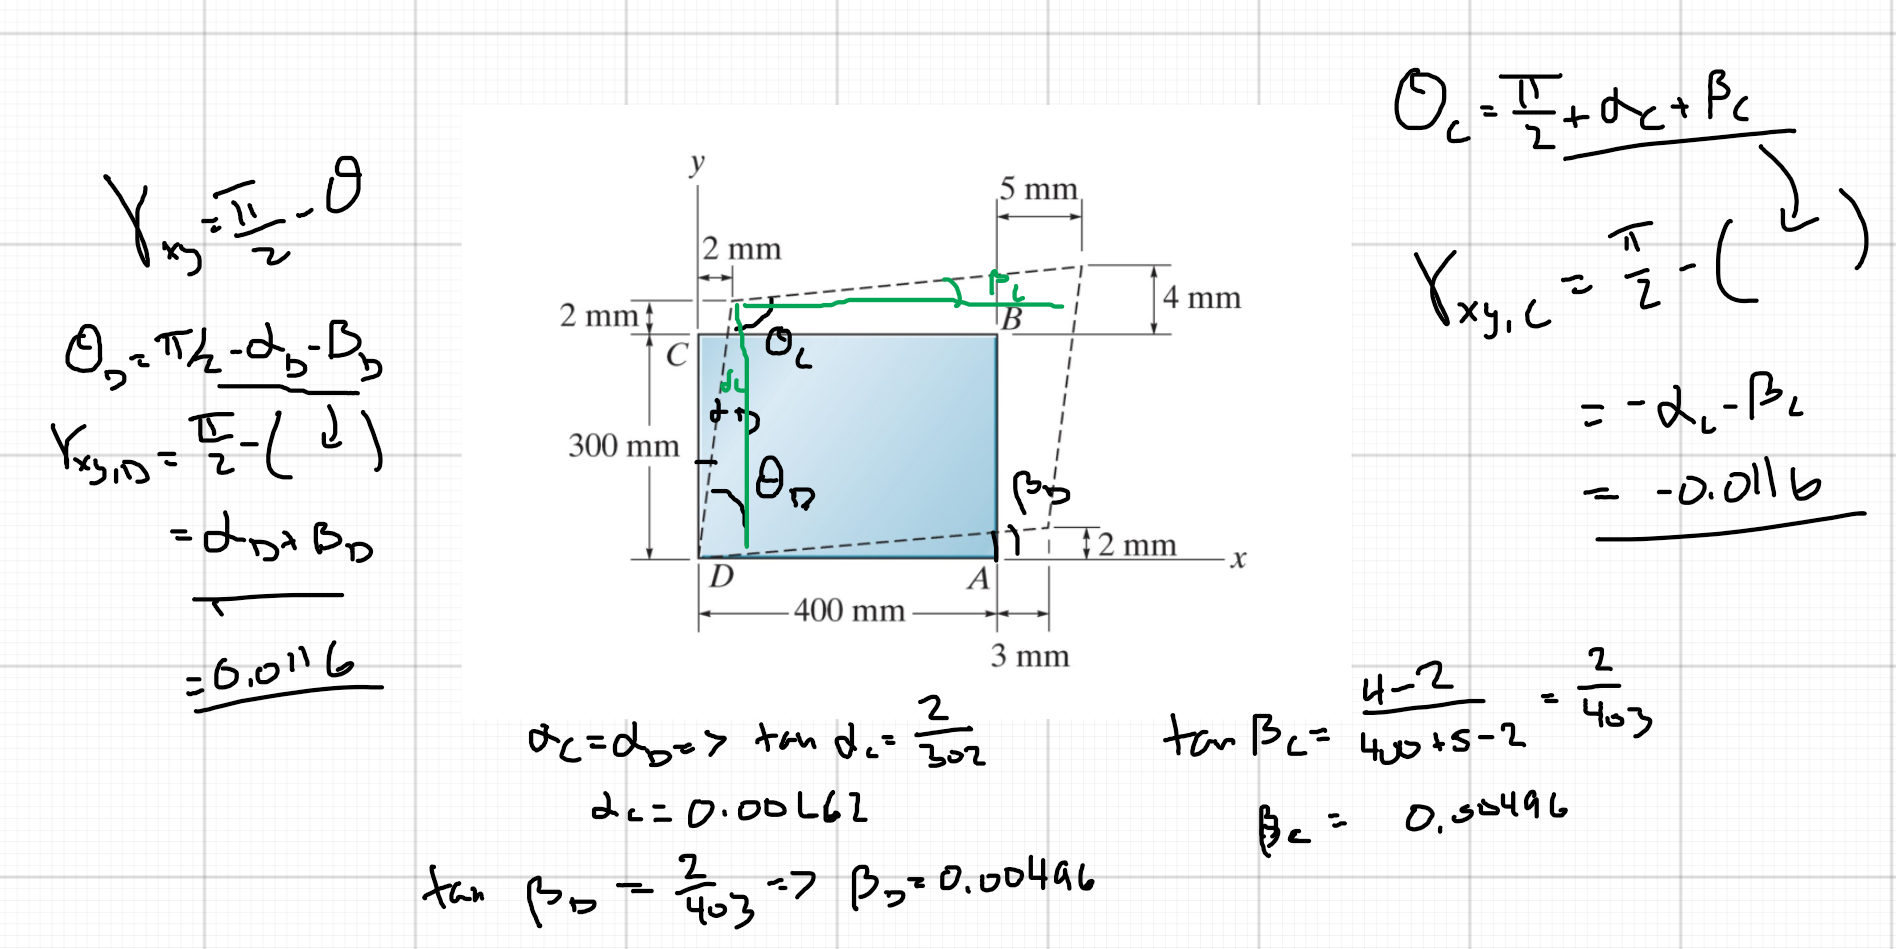 γxy = π/2 - θ
θD = π/2 - αD - βD
γxy,D = π/2 - ( ↓ )
= αD + βD
= 0.0116
y
5 mm
2 mm
βC
4 mm
2 mm
B
C
θC
αC
αD
300 mm
θD
βD
2 mm
D
A
x
400 mm
3 mm
θC = π/2 + αC + βC
γxy,C = π/2 - ( )
= -αC - βC
= -0.0116
αC = αD => tan αC = 2/302
αC = 0.00662
tan βD = 2/403 => βD = 0.00496
tan βC = 4-2/400+5-2 = 2/403
βC = 0.00496